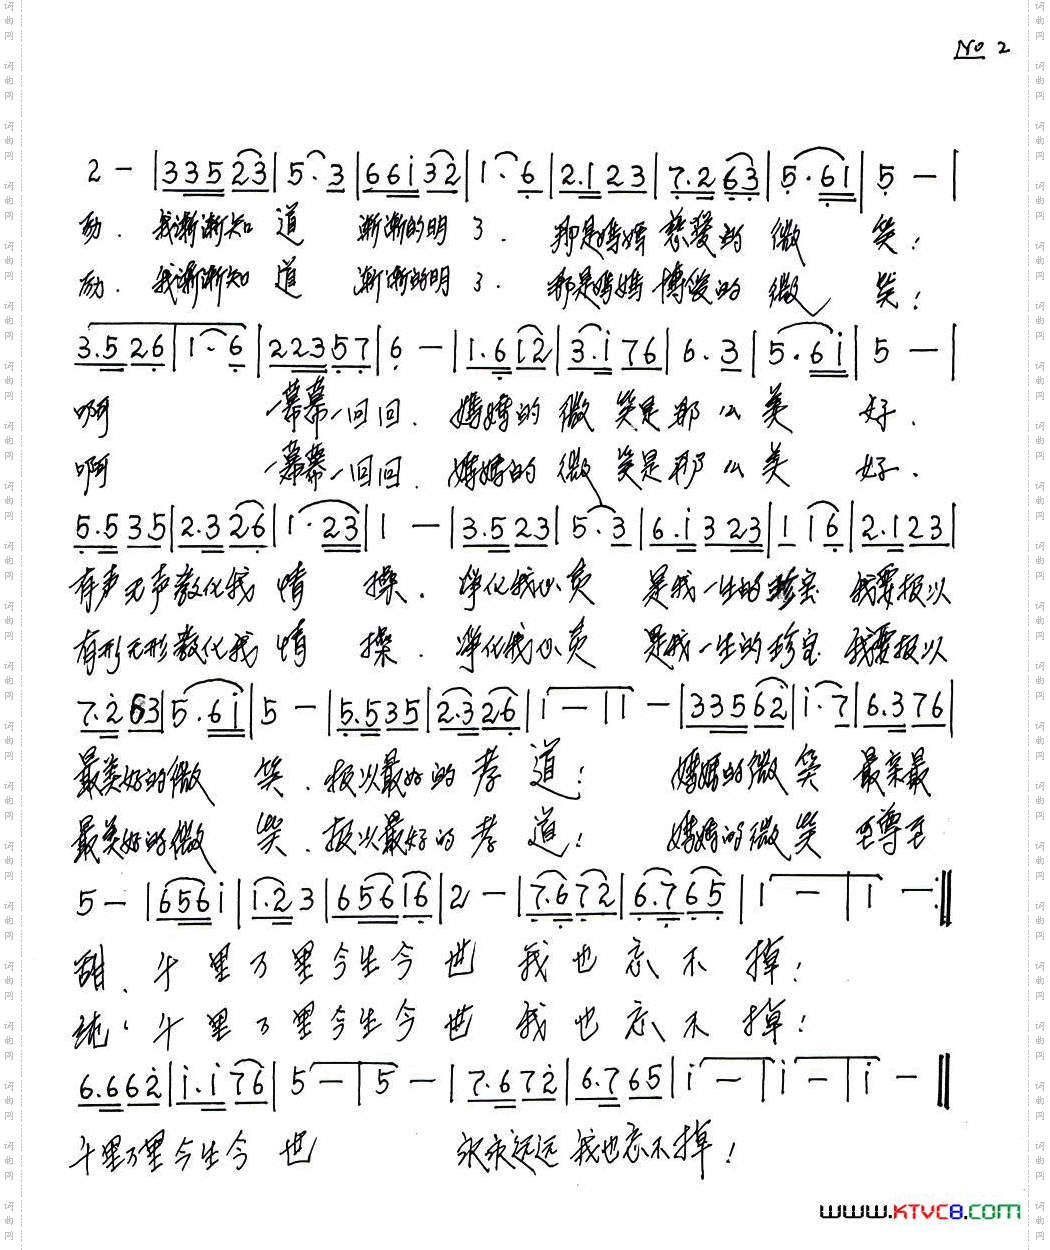 No 2
2 - | 3 3 5 2 3 | 5 . 3 | 6 6 i 3 2 | 1 . 6 | 2 . 1 2 3 | 7 . 2 6 3 | 5 . 6 1 | 5 - |
励. 我渐渐知道 渐渐的明了. 那是妈妈慈爱的微笑!
励. 我渐渐知道 渐渐的明了. 那是妈妈博爱的微笑!
3 . 5 2 6 | 1 . 6 | 2 2 3 5 7 | 6 - | 1 . 6 1 2 | 3 . i 7 6 | 6 . 3 | 5 . 6 i | 5 - |
啊 一幕幕一回回. 妈妈的微笑是那么美好.
啊 一幕幕一回回. 妈妈的微笑是那么美好.
5 . 5 3 5 | 2 . 3 2 6 | 1 . 2 3 | 1 - | 3 . 5 2 3 | 5 . 3 | 6 . i 3 2 3 | 1 1 6 | 2 . 1 2 3 |
有声无声教化我情操. 净化我心灵 是我一生的珍宝 我要报以
有形无形教化我情操. 净化我心灵 是我一生的珍宝 我要报以
7 . 2 6 3 | 5 . 6 i | 5 - | 5 . 5 3 5 | 2 . 3 2 6 | 1 - | 1 - | 3 3 5 6 2 | i . 7 | 6 . 3 7 6 |
最美好的微笑. 报以最好的孝道! 妈妈的微笑 最亲最
最美好的微笑. 报以最好的孝道! 妈妈的微笑 至尊至
5 - | 6 5 6 i | 1 . 2 3 | 6 5 6 1 6 | 2 - | 7 . 6 7 2 | 6 . 7 6 5 | 1 - | 1 - :||
甜. 千里万里今生今世 我也忘不掉!
纯. 千里万里今生今世 我也忘不掉!
6 . 6 6 2 | i . i 7 6 | 5 - | 5 - | 7 . 6 7 2 | 6 . 7 6 5 | i - | i - | i - ||
千里万里今生今世 永永远远我也忘不掉!
www.KTVC8.com
词曲网